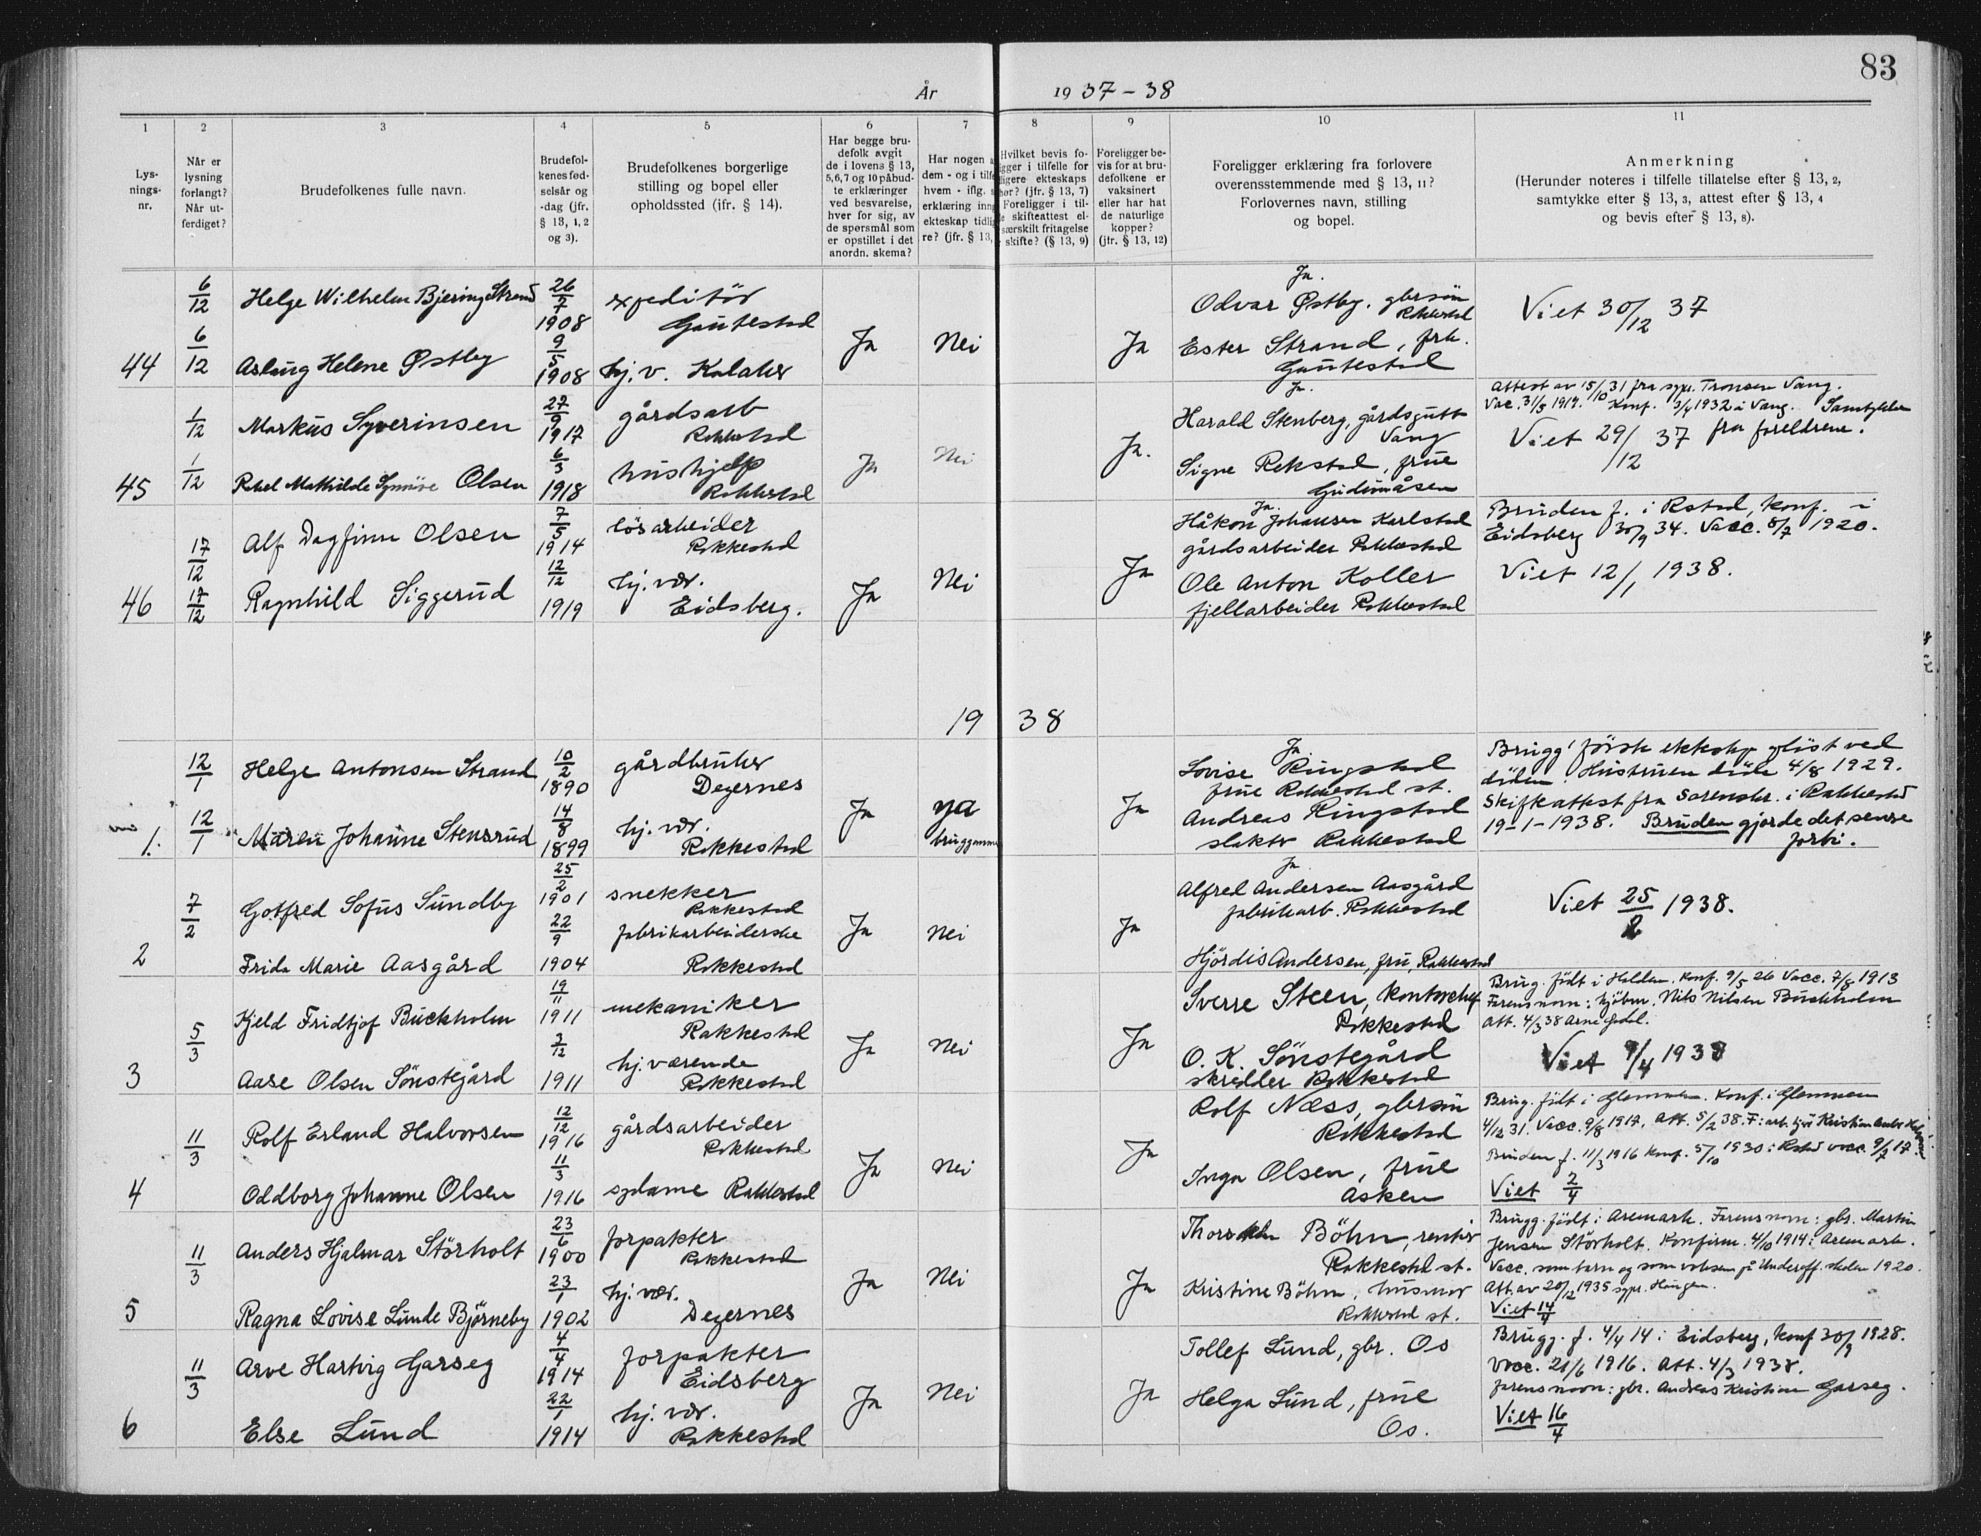 83
År 1937-38
1 2 3 4 5 6 7 8 9 10 11
Lys-
nings-
nr.
Når er
lysning
forlangt?
Når ut-
ferdiget?
Brudefolkenes fulle navn.
Brudefol-
kenes fød-
selsår og
-dag (jfr.
§ 13, 1, 2
og 3).
Brudefolkenes borgerlige
stilling og bopel eller
opholdssted (jfr. § 14).
Har begge bru-
defolk avgit
de i lovens § 13,
5, 6, 7 og 10 påbud-
te erklæringer
ved besvarelse,
hver for sig, av
de spørsmål som
er opstillet i det
anordn. skema?
Har nogen a
dem - og i tilf
hvem - iflg. s
erklæring inn
ekteskap tidlig
re? (jfr. § 13,
Hvilket bevis fo-
gger i tilfelle for
ligere ekteskaps
hør? (jfr. § 13, 7)
Foreligger i til-
e skifteattest el-
særskilt fritagelse
skifte? (§ 13, 9)
Foreligger be-
vis for at bru-
defolkene er
vaksinert
eller har hat
de naturlige
kopper?
(jfr. § 13, 12)
Foreligger erklæring fra forlovere
overensstemmende med § 13, 11?
Forlovernes navn, stilling
og bopel.
Anmerkning
(Herunder noteres i tilfelle tillatelse efter § 13, 2,
samtykke efter § 13, 3, attest efter § 13, 4
og bevis efter § 13, 8).
44
6/12
6/12
Helge Wilhelm Bjering Strand
Aslaug Helene Østby
26/7
1908
9/5
1908
expeditør
Gautestad
hj. v. Kolaker
Ja Nei Ja
Ja.
Odvar Østby. gbrsøn
Rakkestad
Ester Strand, frk.
Gautestad
Viet 30/12 37
45
1/12
1/12
Markus Syverinsen
Rakel Mathilde Synnøve Olsen
27/9
1917
6/3
1918
gårdsarb
Rakkestad
hushjelp
Rakkestad
Ja Nei Ja.
Ja.
Harald Stenberg, gårdsgutt
Vang
Signe Rekstad, frue
Gudimåsen
Attest av 15/10 31 fra sypr. Tronsen Vang.
Vac. 31/5 1919. Konf. 3/4 1932 i Vang. Samtykke
fra foreldrene.
Viet 29/12 37
46
17/12
17/12
Alf Dagfinn Olsen
Ragnhild Siggerud
7/5
1914
12/12
1919
løsarbeider
Rakkestad
hj. vær.
Eidsberg.
Ja Nei Ja
Ja.
Håkon Johansen Karlstad
gårdsarbeider Rakkestad
Ole Anton Koller
fjellarbeider Rakkestad
Bruden f. i Rstad, konf. i
Eidsberg 30/9 34. Vacc. 8/7 1920.
Viet 12/1 1938.
1938
1.
12/1
12/1
Helge Antonsen Strand
Maren Johanne Stensrud
10/2
1890
14/8
1899
gårdbruker
Degernes
hj. vær.
Rakkestad
Ja ya Ja
bruggomme
Ja
Lovise Ringstad
frue Rakkestad st.
Andreas Ringstad
slakter Rakkestad
Brugg' første ekteskp opløst ved
døden. Hustruen døde 4/8 1929.
Skifteattest fra Sorenskr. i Rakkestad
19-1-1938. Bruden gjorde det senere
forbi.
2
7/2
Gotfred Sofus Sundby
Frida Marie Aasgård
25/2
1901
22/9
1904
snekker
Rakkestad
fabrikarbeiderske
Rakkestad
Ja Nei Ja
Ja
Alfred Andersen Aasgård
fabrikarb. Rakkestad
Hjördis Andersen, fru, Rakkestad
Viet 25/2 1938.
3
5/3
Kjeld Fridtjof Buckholm
Aase Olsen Sönstegård
19/11
1911
3/12
1911
mekaniker
Rakkestad
hj. værende
Rakkestad
Ja Nei Ja
Sverre Steen, kontorchef
Rakkestad
O. K. Sönstegård
skredder Rakkestad
Brug. født i Halden. Konf. 9/5 26 Vacc. 7/8 1913
Farens navn: kjöbm. Nils Nilsen Buckholm
Att. 4/3 38
Viet 9/4 1938
4
11/3
Rolf Erland Halvorsen
Oddborg Johanne Olsen
12/12
1916
11/3
1916
gårdsarbeider
Rakkestad
sydame Rakkestad
Ja Nei Ja
Rolf Næss, gbrsøn
Rakkestad
Inga Olsen, frue
Asken
Brug. født i Glemmen. Konf. i Glemmen
4/12 31. Vacc. 9/8 1917. Att. 5/2 38.
Bruden f. 11/3 1916 Konf. 5/10 1930 i Rstad vacc. 9/7 17
Viet 2/4
5
11/3
Anders Hjalmar Störholt
Ragna Lovise Lunde Bjørneby
23/6
1900
23/1
1902
forpakter
Rakkestad
hj. vær.
Degernes
Ja Nei Ja
Böhm, rentier
Rakkestad st.
Kristine Böhm, husmor
Rakkestad st.
Brugg. født i Aremark. Farens navn: gbr. Martin
Jensen Störholt. Konfirm. 4/10 1914 i Aremark.
Vacc. som barn og som voksen på Underoff. skolen 1920.
Att. av 20/12 1935 sypr. Haugen.
Viet 14/4
6
11/3
Arve Hartvig Garseg
Else Lund
4/4
1914
22/1
1914
forpakter
Eidsberg
hj. vær.
Rakkestad
Ja Nei Ja
Tollef Lund, gbr. Os
Helga Lund, frue
Os.
Brugg. f. 4/4 14 i Eidsberg, konf 30/9 1928.
Vacc. 21/6 1916. Att. 4/3 1938.
farens navn: gbr. Andreas Kristian Garseg.
Viet 16/4